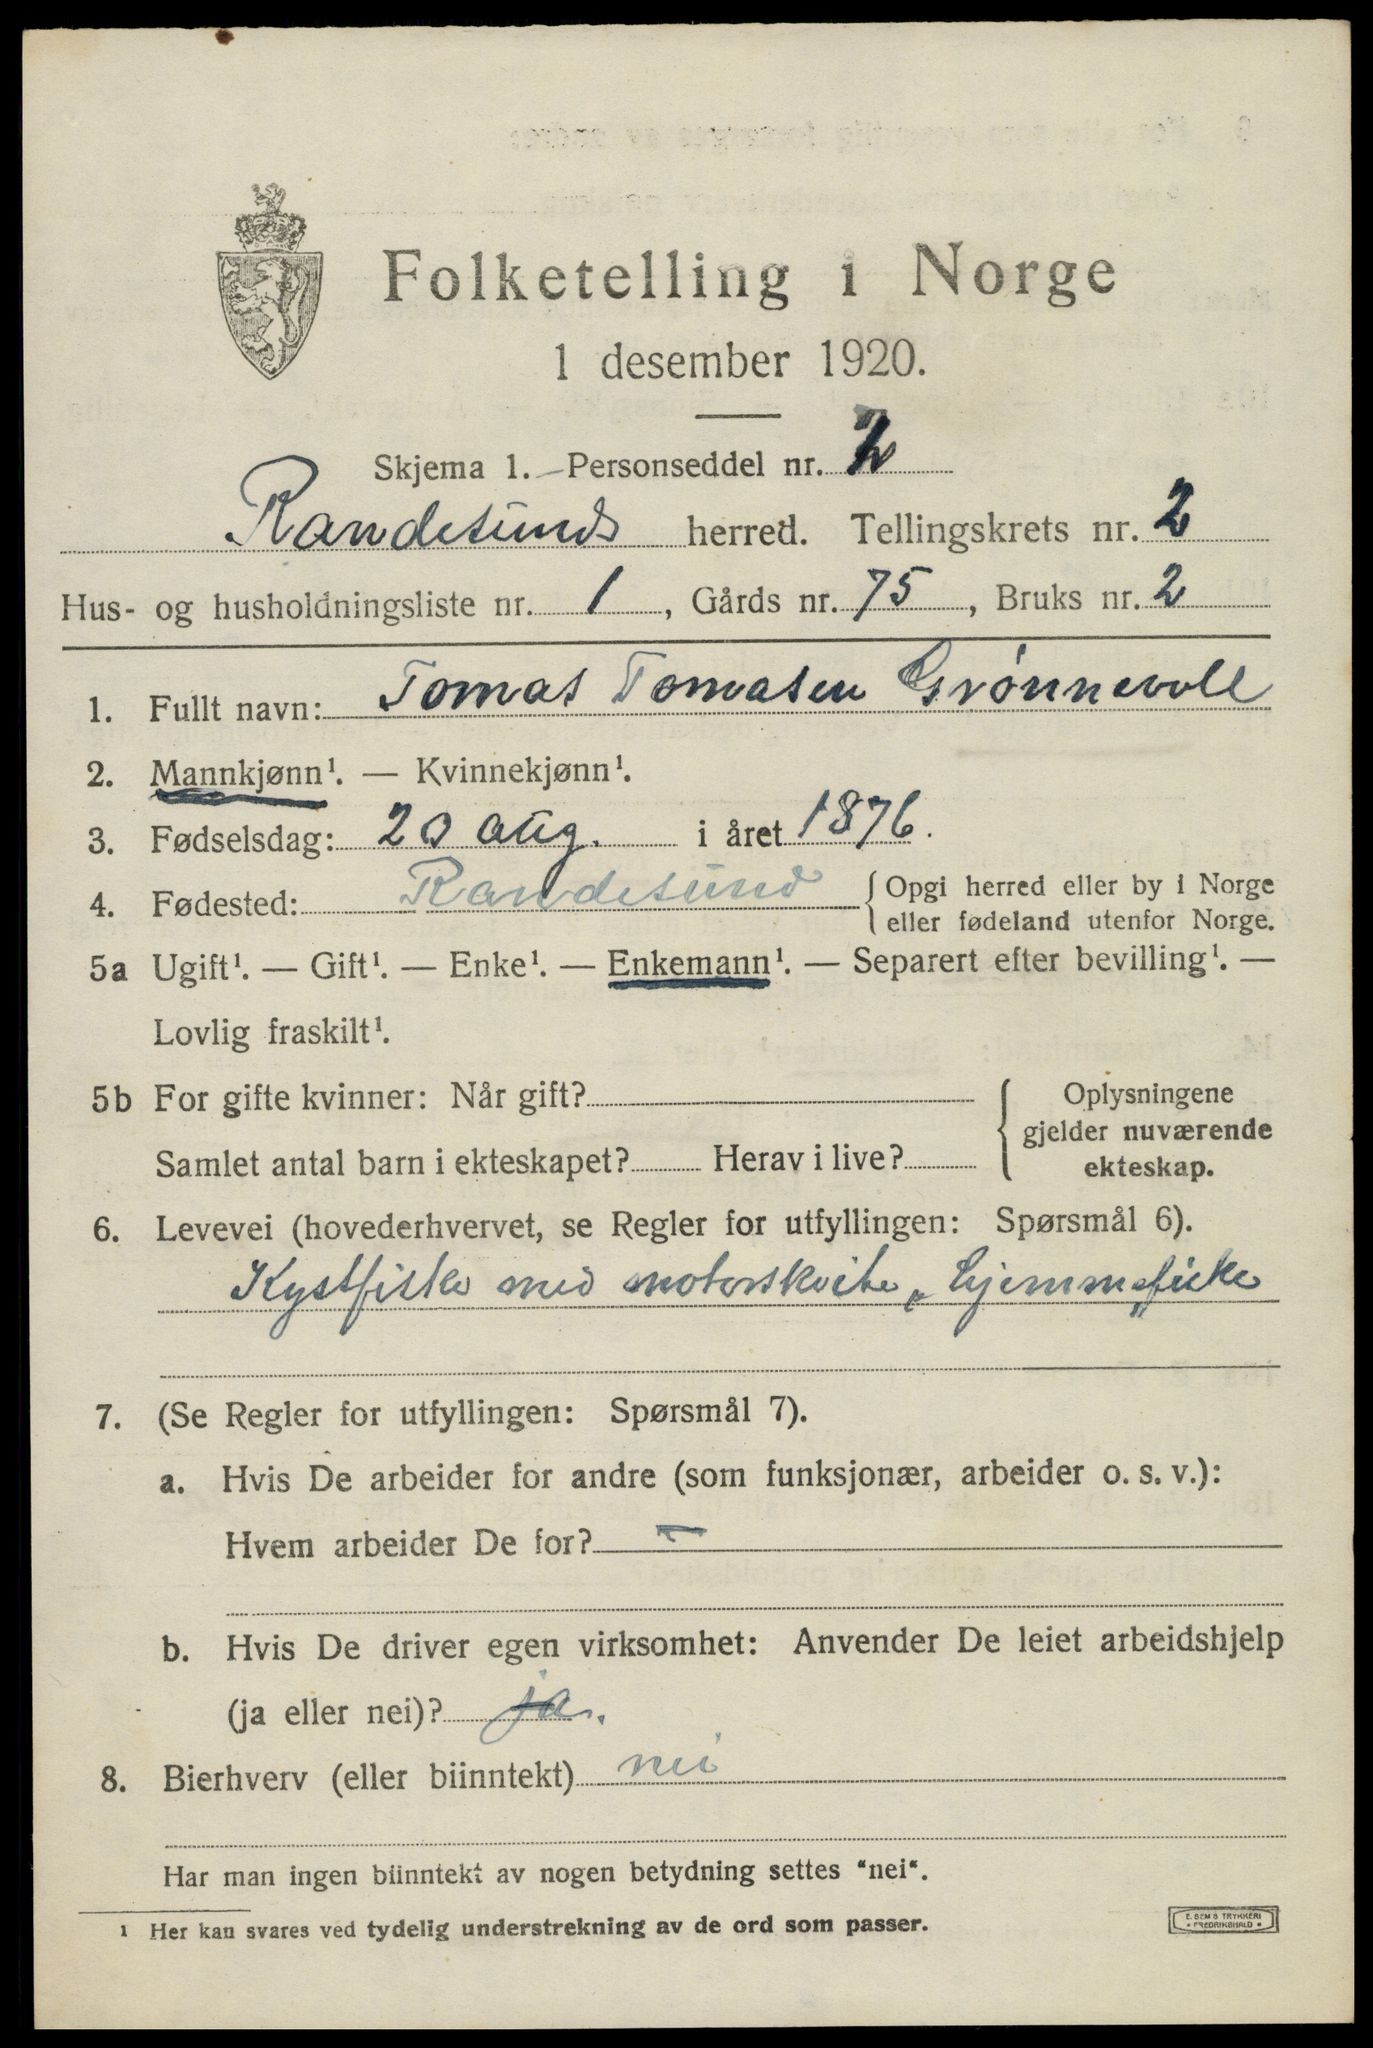 Folketelling i Norge
1 desember 1920.
Skjema 1. Personseddel nr. 2
Randesunds herred. Tellingskrets nr. 2
Hus- og husholdningsliste nr. 1, Gårds nr. 75, Bruks nr. 2
1. Fullt navn: Tomas Tomasen Grønnevoll
2. Mannkjønn¹. — Kvinnekjønn¹.
3. Fødselsdag: 20 aug. i året 1876.
4. Fødested: Randesund { Opgi herred eller by i Norge
eller fødeland utenfor Norge.
5a Ugift¹. — Gift¹. — Enke¹. — Enkemann¹. — Separert efter bevilling¹. —
Lovlig fraskilt¹.
5b For gifte kvinner: Når gift? { Oplysningene
gjelder nuværende
Samlet antal barn i ekteskapet? Herav i live? ekteskap.
6. Levevei (hovederhvervet, se Regler for utfyllingen: Spørsmål 6).
Kystfiske med motorskøite „hjemmefiske
7. (Se Regler for utfyllingen: Spørsmål 7).
a. Hvis De arbeider for andre (som funksjonær, arbeider o. s. v.):
Hvem arbeider De for? —
b. Hvis De driver egen virksomhet: Anvender De leiet arbeidshjelp
(ja eller nei)? ja.
8. Bierhverv (eller biinntekt) nei
Har man ingen biinntekt av nogen betydning settes "nei".
¹ Her kan svares ved tydelig understrekning av de ord som passer.
E. SEM'S TRYKKERI
• FREDRIKSHALD •